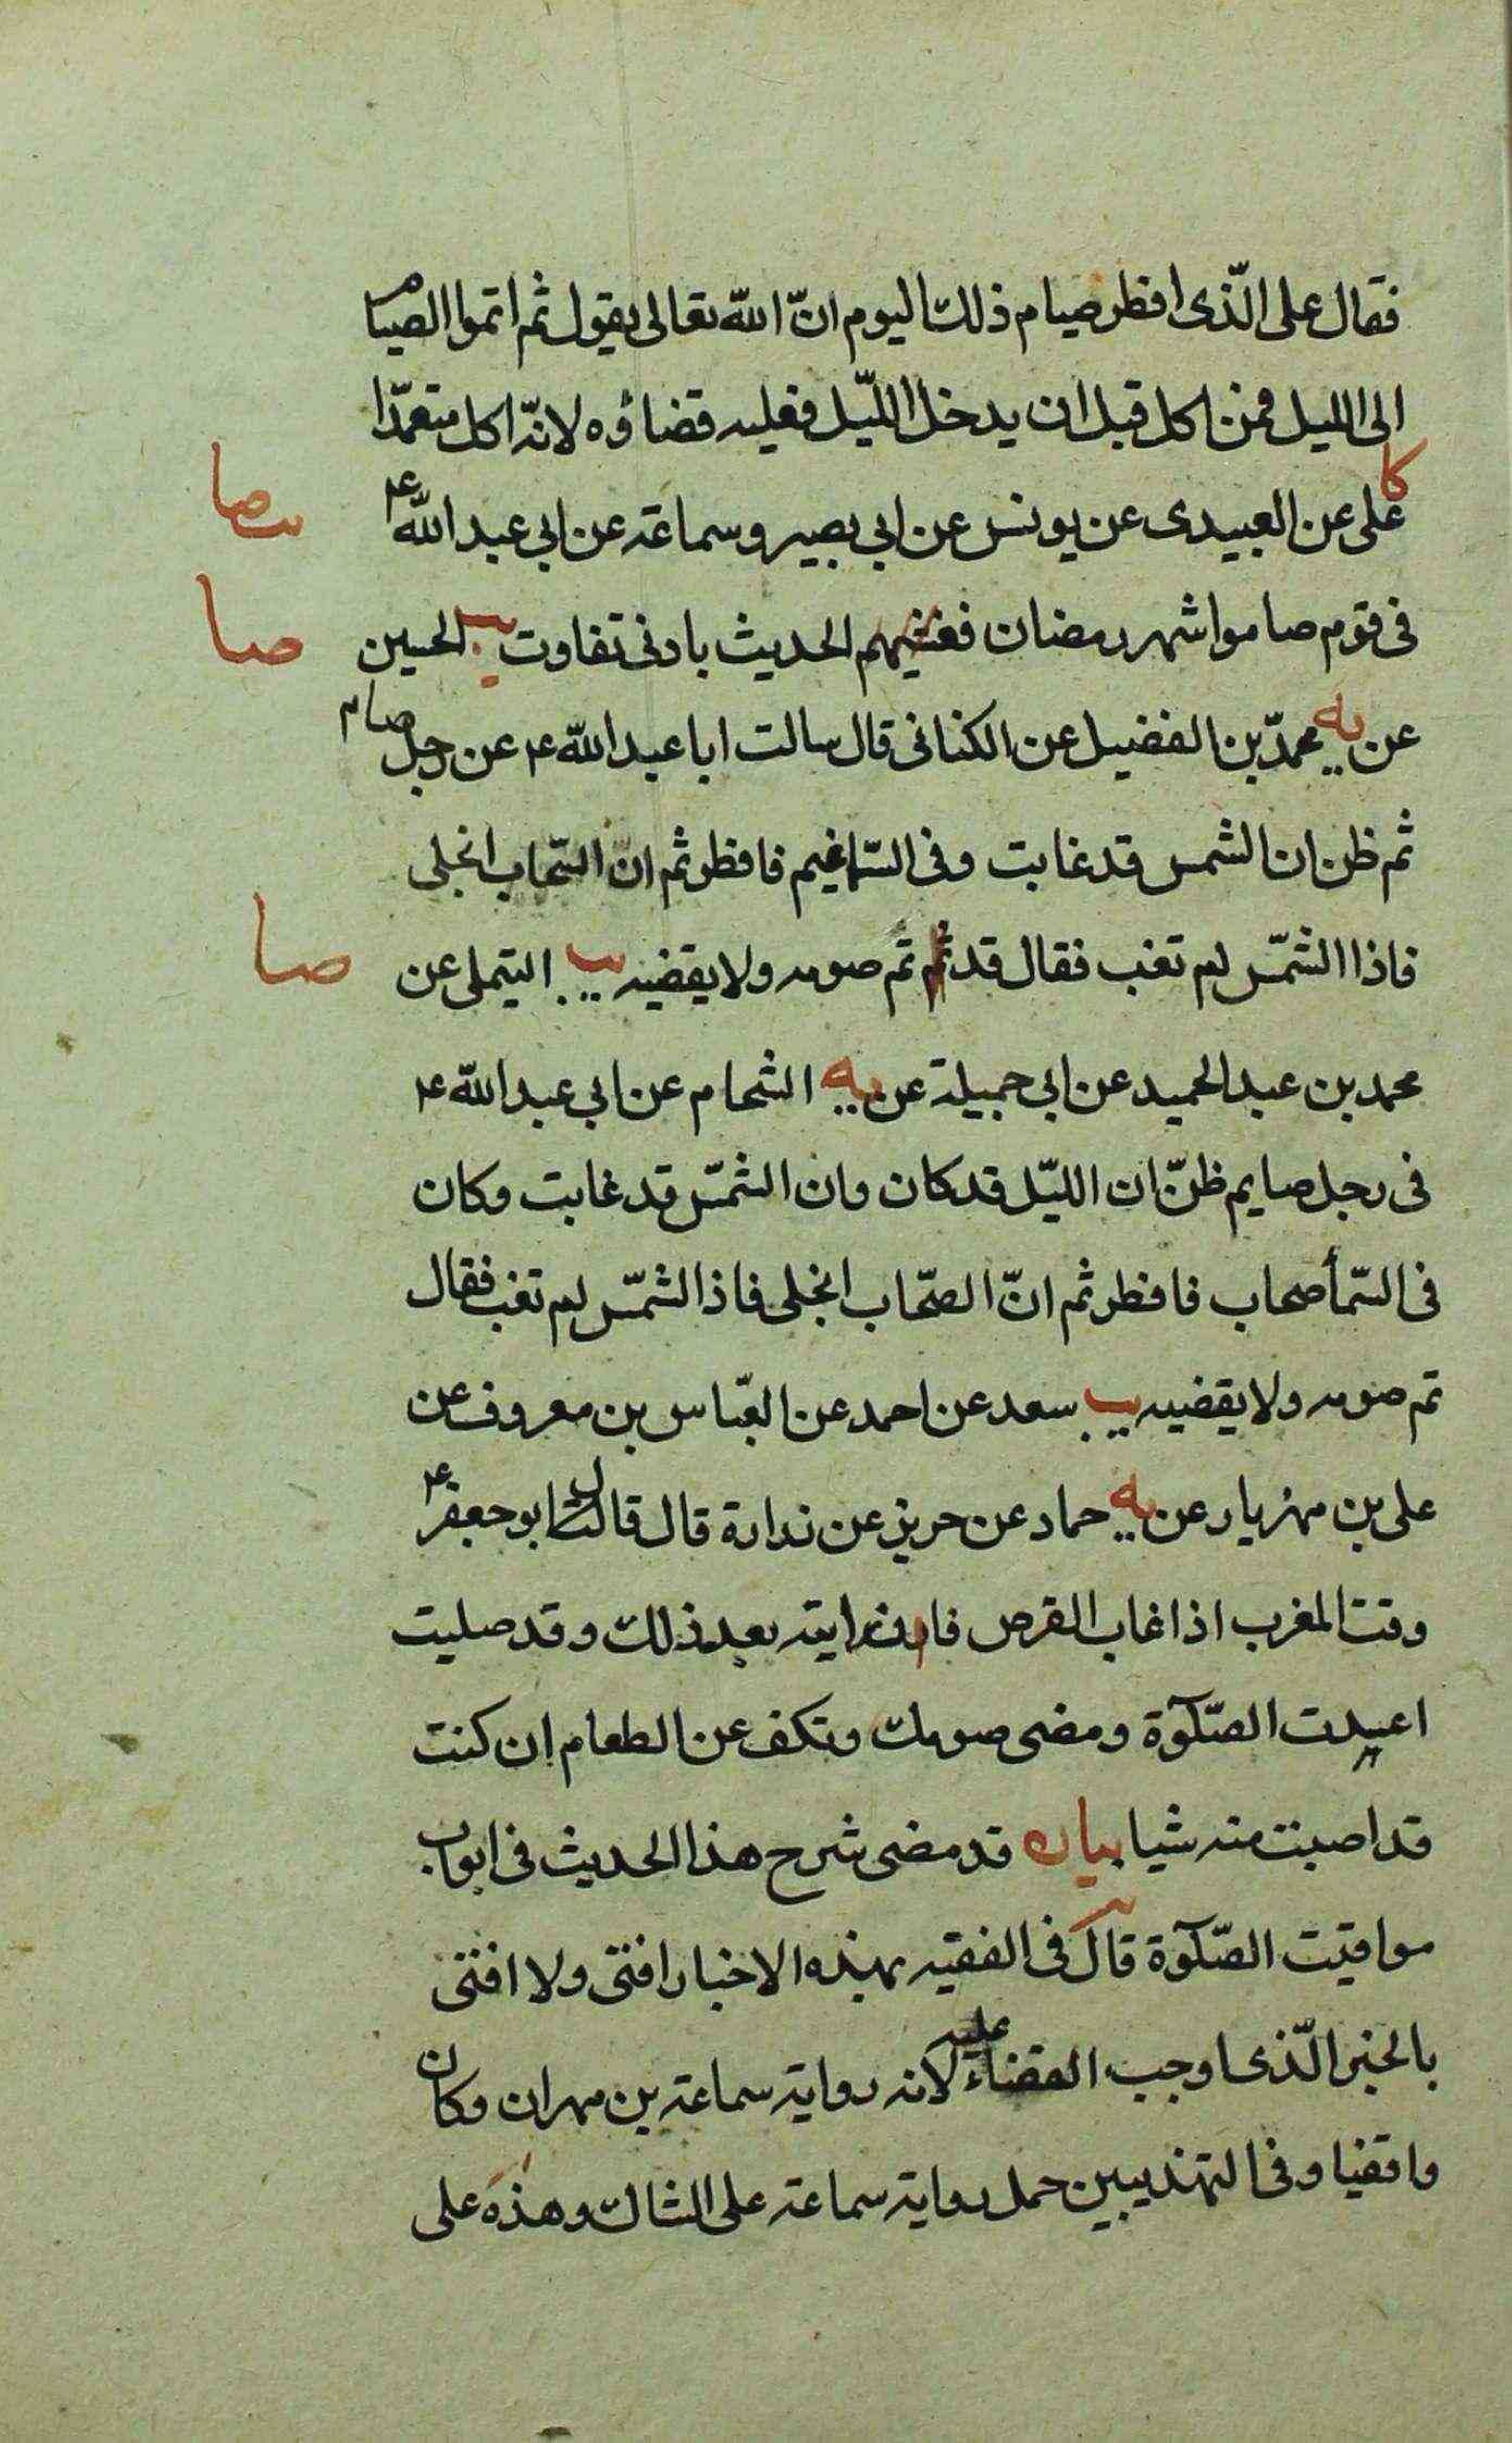 فقال على الّذى افطر صيام ذلك اليوم انّ الله تعالى يقول ثم اتموا الصيام
الى الليل فمن اكل قبل ان يدخل الليّل فعليه قضاؤه لانّه اكل متعمّدا
كا على عن العبيدى عن يونس عن ابي بصير وسماعة عن ابي عبد الله ع
فى قوم صاموا شهر رمضان فغشيهم الحديث بادنى تفاوت يب الحسين
صا
عن يه محمدّ بن الفضيل عن الكنانى قال سالت ابا عبد الله ع عن رجل صام
ثم ظن ان الشمس قد غابت وفى السّماء غيم فافطر ثم انّ السّحاب انجلى
فاذا الشمّس لم تغب فقال قد تم صومه ولا يقضيه يب التيملى عن
صا
محمد بن عبد الحميد عن ابي جميلة عن يه الشحام عن ابي عبد الله ع
فى رجل صايم ظنّ ان الليّل قد كان وان الشمّس قد غابت وكان
فى السّمأ صحاب فافطر ثم انّ الصّحاب انجلى فاذا الشمّس لم تغب فقال
تم صومه ولا يقضيه يب سعد عن احمد عن العبّاس بن معروف عن
على بن مهزيار عن يه حماد عن حريز عن زرارة قال قال ابو جعفر ع
وقت المغرب اذا غاب القرص فان رايته بعد ذلك وقد صليت
اعدت الصّلوٰة ومضى صومك وتكف عن الطعام ان كنت
قد اصبت منه شيا بيان قد مضى شرح هذا الحديث فى ابواب
مواقيت الصّلوٰة قال فى الفقيه بهذه الاخبار افتى ولا افتى
بالخبر الّذى اوجب القضاء عليه لانه رواية سماعة بن مهران وكان
واقفيا وفى التهذيبين حمل رواية سماعة على الشاك وهذه على